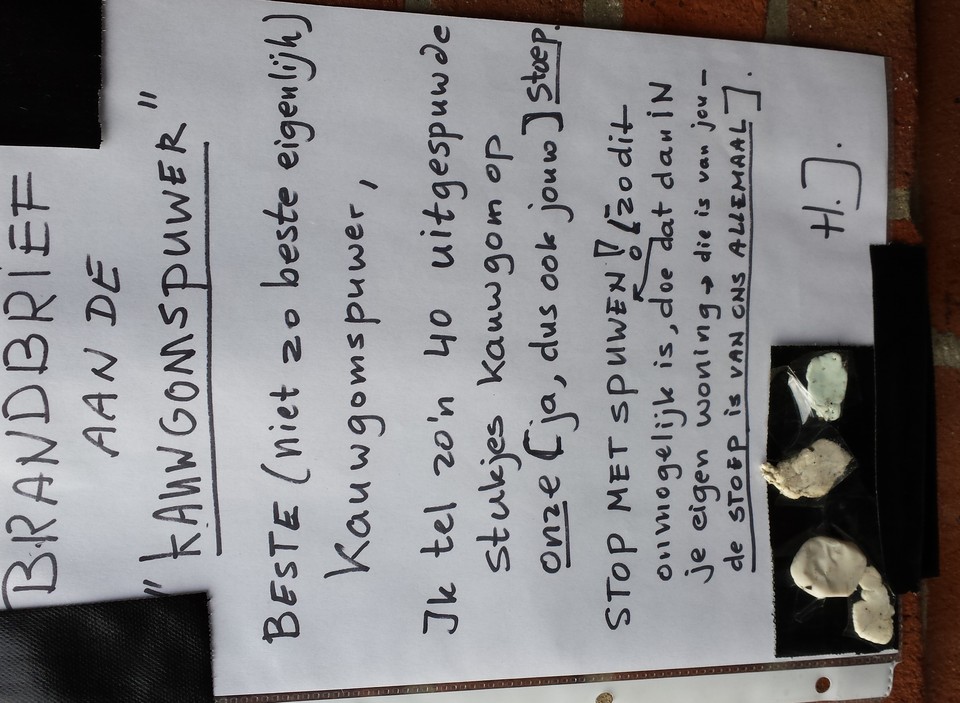 BRANDBRIEF
AAN DE
"KAUWGOMSPUWER"
BESTE (niet zo beste eigenlijk)
Kauwgomspuwer,
Ik tel zo'n 40 uitgespuwde
stukjes kauwgom op
onze [ja, dus ook jouw] stoep.
STOP MET SPUWEN! [zo dit
onmogelijk is, doe dat dan iN
je eigen woning → die is van jou -
de STOEP is VAN ONS ALLEMAAL].
H.J.